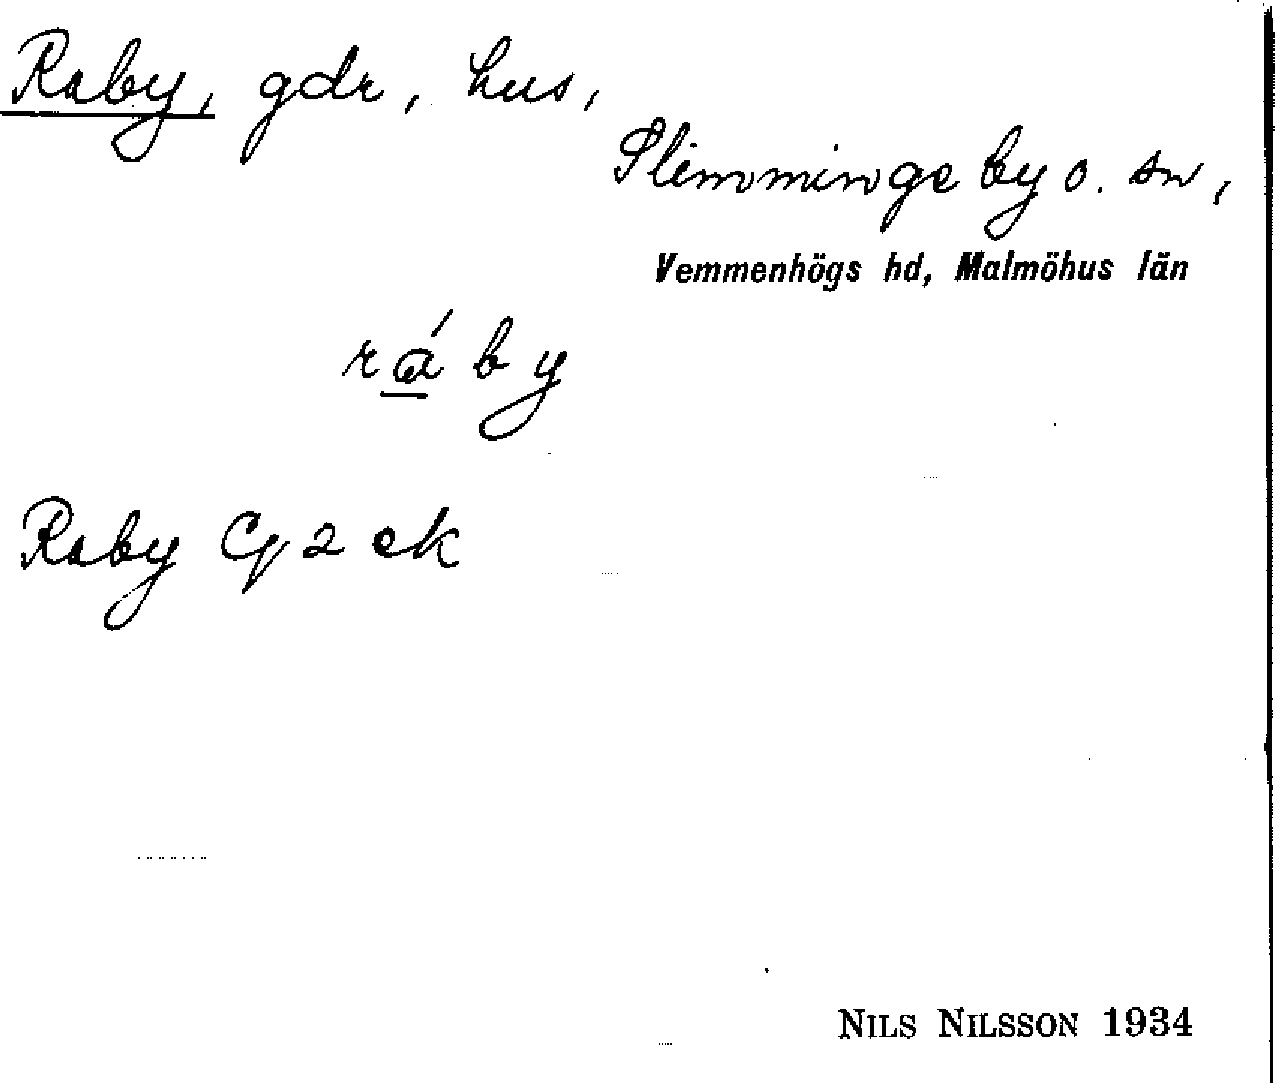 Raby, gdr, hus,
Slimminge by o. sn,
Vemmenhögs hd, Malmöhus län
rá̱ by
Raby Gj 2 ek
NILS NILSSON 1934